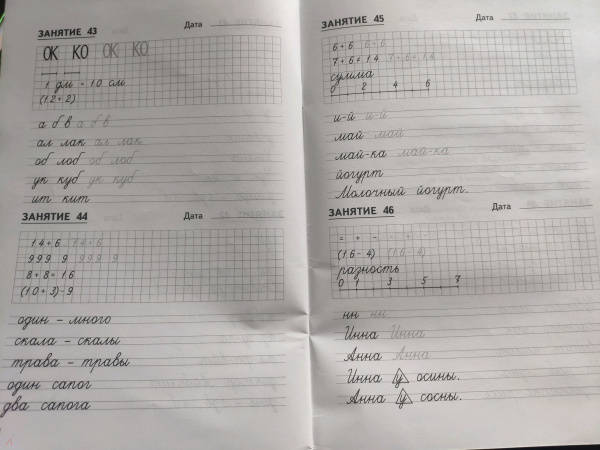 ЗАНЯТИЕ 43 Дата
ОК КО ОК КО
1 дм = 10 см
(12+2)
а б в а б в
ал лак ал лак
об лоб об лоб
ук куб ук куб
ит кит
ЗАНЯТИЕ 44 Дата
14+6 14+6
999 9 999 9
8+8=16
(10+3)-9
один - много
скала - скалы
трава - травы
один сапог
два сапога
ЗАНЯТИЕ 45 Дата
6+6 6+6
7+6=14 7+6=14
сумма
2 4 6
и-й и-й
май май
май-ка май-ка
йогурт
Молочный йогурт.
ЗАНЯТИЕ 46 Дата
= + - = + -
(16-4) (16-4)
разность
0 1 3 5 7
нн нн
Инна Инна
Анна Анна
Инна у осины.
Анна у сосны.